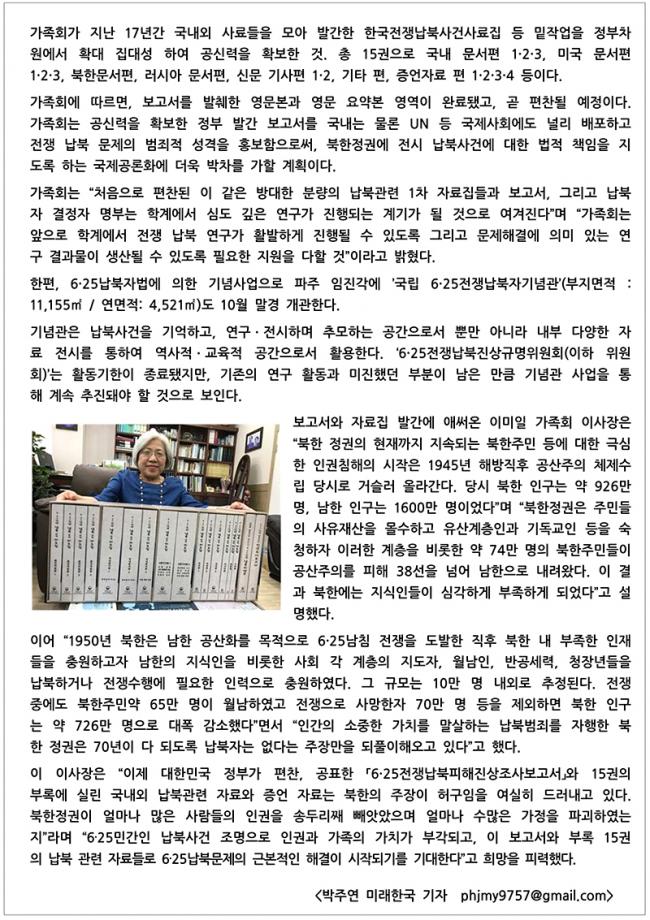 가족회가 지난 17년간 국내외 사료들을 모아 발간한 한국전쟁납북사건사료집 등 밑작업을 정부차
원에서 확대 집대성 하여 공신력을 확보한 것. 총 15권으로 국내 문서편 1·2·3, 미국 문서편
1·2·3, 북한문서편, 러시아 문서편, 신문 기사편 1·2, 기타 편, 증언자료 편 1·2·3·4 등이다.
가족회에 따르면, 보고서를 발췌한 영문본과 영문 요약본 영역이 완료됐고, 곧 편찬될 예정이다.
가족회는 공신력을 확보한 정부 발간 보고서를 국내는 물론 UN 등 국제사회에도 널리 배포하고
전쟁 납북 문제의 범죄적 성격을 홍보함으로써, 북한정권에 전시 납북사건에 대한 법적 책임을 지
도록 하는 국제공론화에 더욱 박차를 가할 계획이다.
가족회는 “처음으로 편찬된 이 같은 방대한 분량의 납북관련 1차 자료집들과 보고서, 그리고 납북
자 결정자 명부는 학계에서 심도 깊은 연구가 진행되는 계기가 될 것으로 여겨진다”며 “가족회는
앞으로 학계에서 전쟁 납북 연구가 활발하게 진행될 수 있도록 그리고 문제해결에 의미 있는 연
구 결과물이 생산될 수 있도록 필요한 지원을 다할 것”이라고 밝혔다.
한편, 6·25납북자법에 의한 기념사업으로 파주 임진각에 '국립 6·25전쟁납북자기념관'(부지면적 :
11,155㎡ / 연면적: 4,521㎡)도 10월 말경 개관한다.
기념관은 납북사건을 기억하고, 연구·전시하며 추모하는 공간으로서 뿐만 아니라 내부 다양한 자
료 전시를 통하여 역사적·교육적 공간으로서 활용한다. '6·25전쟁납북진상규명위원회(이하 위원
회)'는 활동기한이 종료됐지만, 기존의 연구 활동과 미진했던 부분이 남은 만큼 기념관 사업을 통
해 계속 추진돼야 할 것으로 보인다.
보고서와 자료집 발간에 애써온 이미일 가족회 이사장은
“북한 정권의 현재까지 지속되는 북한주민 등에 대한 극심
한 인권침해의 시작은 1945년 해방직후 공산주의 체제수
립 당시로 거슬러 올라간다. 당시 북한 인구는 약 926만
명, 남한 인구는 1600만 명이었다”며 “북한정권은 주민들
의 사유재산을 몰수하고 유산계층인과 기독교인 등을 숙
청하자 이러한 계층을 비롯한 약 74만 명의 북한주민들이
공산주의를 피해 38선을 넘어 남한으로 내려왔다. 이 결
과 북한에는 지식인들이 심각하게 부족하게 되었다”고 설
명했다.
이어 “1950년 북한은 남한 공산화를 목적으로 6·25남침 전쟁을 도발한 직후 북한 내 부족한 인재
들을 충원하고자 남한의 지식인을 비롯한 사회 각 계층의 지도자, 월남인, 반공세력, 청장년들을
납북하거나 전쟁수행에 필요한 인력으로 충원하였다. 그 규모는 10만 명 내외로 추정된다. 전쟁
중에도 북한주민약 65만 명이 월남하였고 전쟁으로 사망한자 70만 명 등을 제외하면 북한 인구
는 약 726만 명으로 대폭 감소했다”면서 “인간의 소중한 가치를 말살하는 납북범죄를 자행한 북
한 정권은 70년이 다 되도록 납북자는 없다는 주장만을 되풀이해오고 있다”고 했다.
이 이사장은 “이제 대한민국 정부가 편찬, 공표한 「6·25전쟁납북피해진상조사보고서」와 15권의
부록에 실린 국내외 납북관련 자료와 증언 자료는 북한의 주장이 허구임을 여실히 드러내고 있다.
북한정권이 얼마나 많은 사람들의 인권을 송두리째 빼앗았으며 얼마나 수많은 가정을 파괴하였는
지”라며 “6·25민간인 납북사건 조명으로 인권과 가족의 가치가 부각되고, 이 보고서와 부록 15권
의 납북 관련 자료들로 6·25납북문제의 근본적인 해결이 시작되기를 기대한다”고 희망을 피력했다.
<박주연 미래한국 기자 phjmy9757@gmail.com>